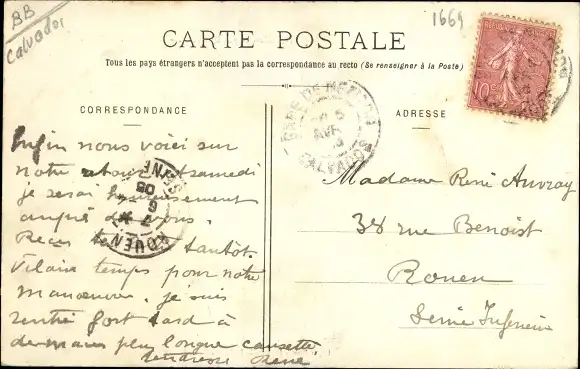 BB
Calvados
1669
CARTE POSTALE
Tous les pays étrangers n'acceptent pas la correspondance au recto (Se renseigner à la Poste)
CORRESPONDANCE
ADRESSE
10c
GARE DE MEZIDON
CALVADOS
Enfin nous voici sur
notre retour samedi
je serai heureusement
auprès de vous.
Reçu tantôt.
Vilain temps pour notre
manoeuvre. je suis
rentré fort tard à
demain plus longue causette.
Tendresse René
ROUEN
Madame René Auvray
38 rue Benoist
Rouen
Seine Inférieure